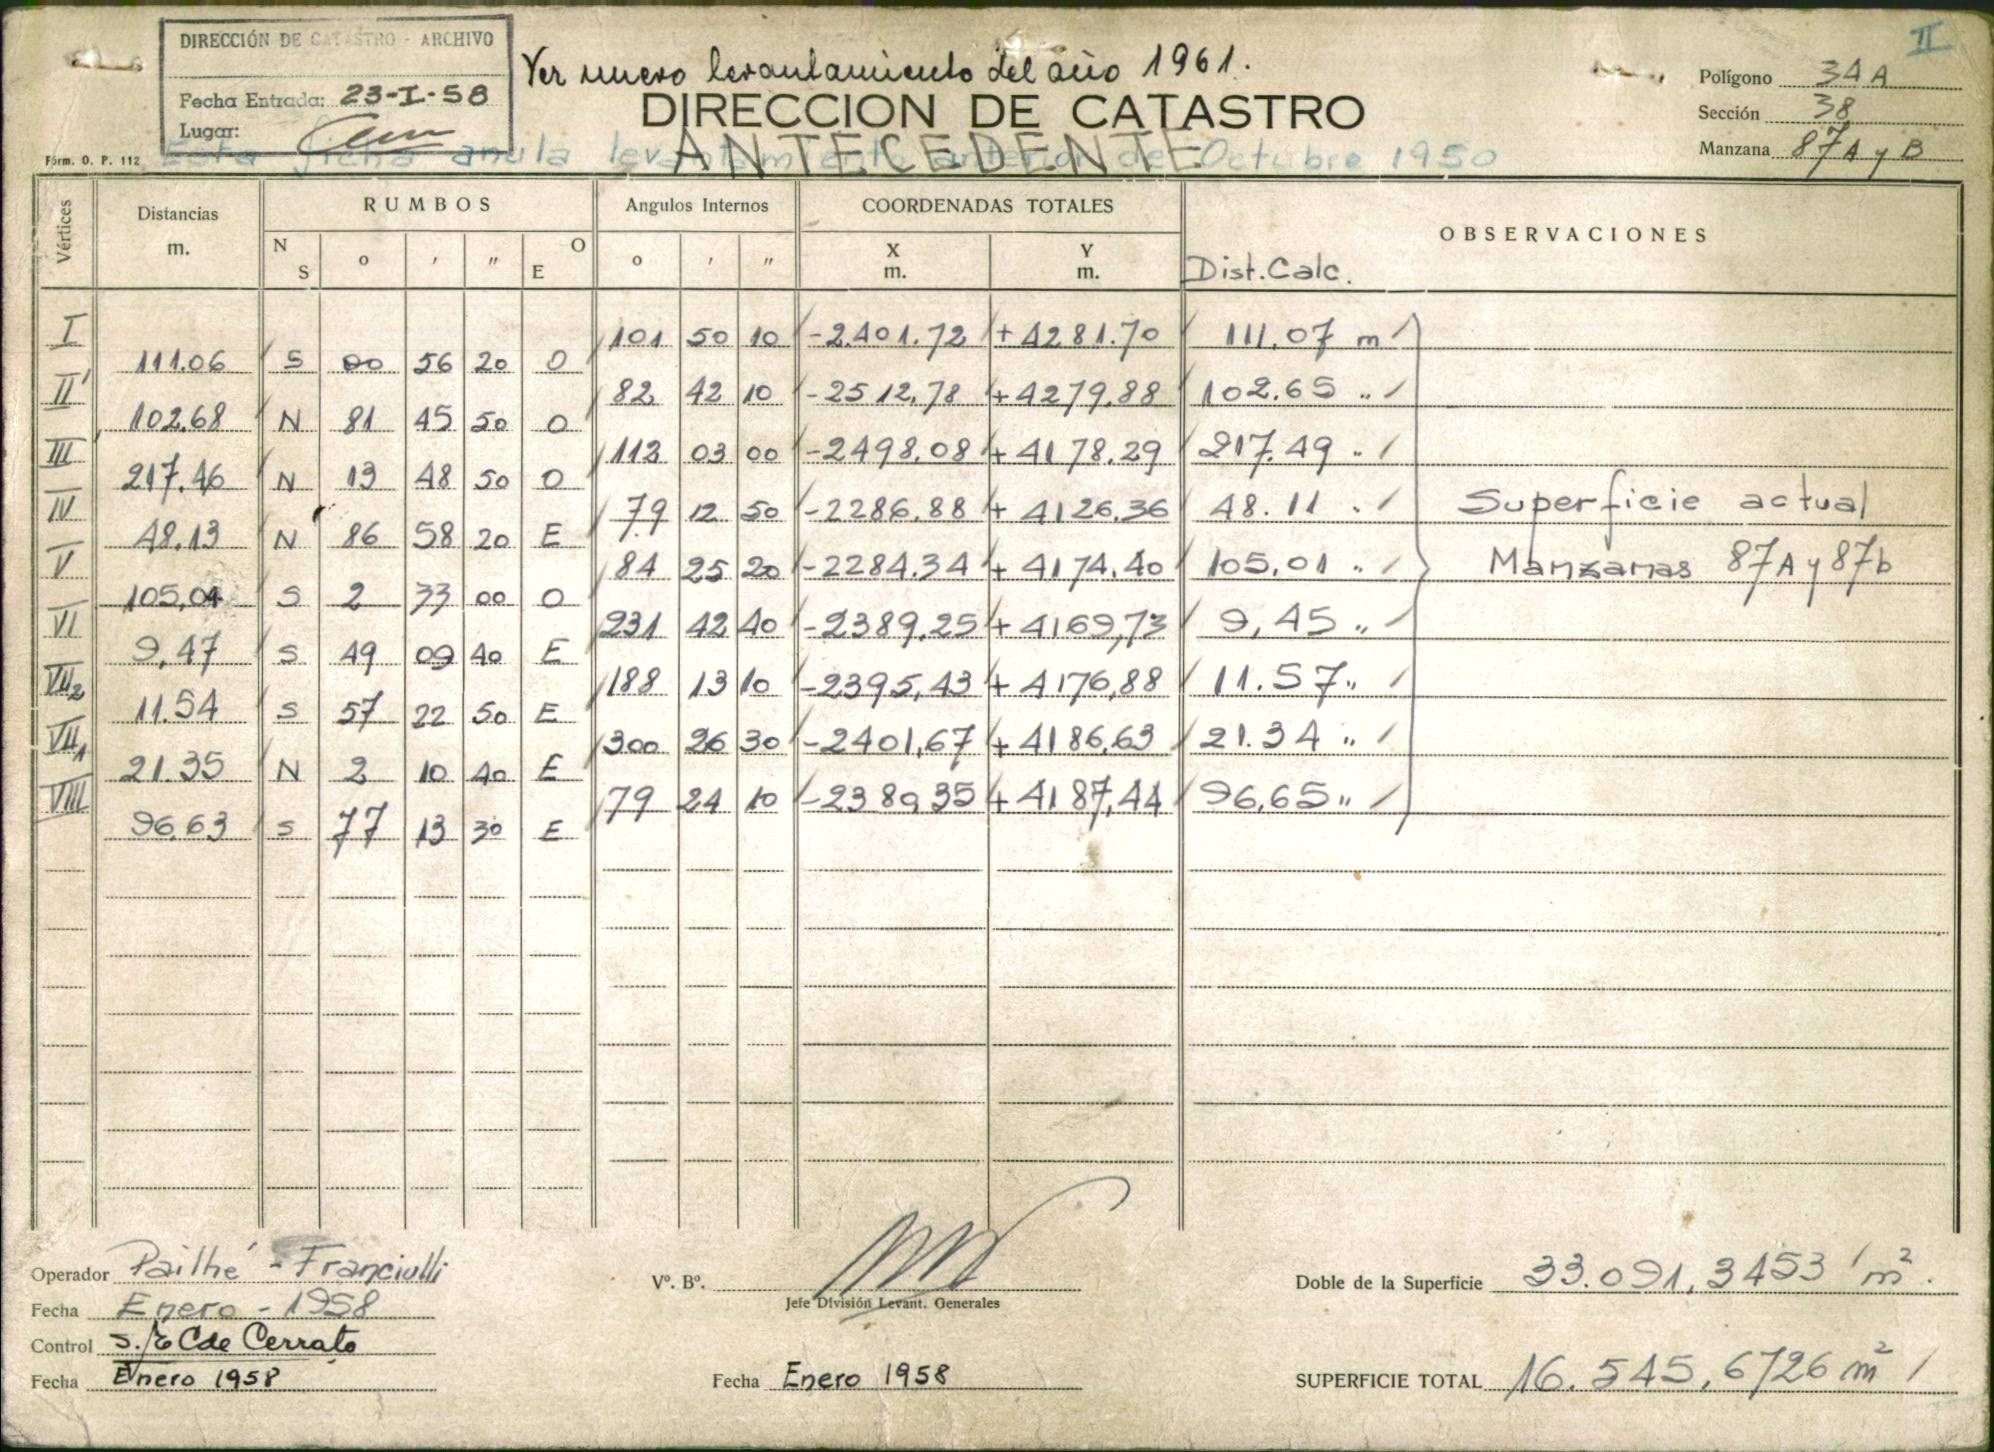 DIRECCIÓN DE CATASTRO - ARCHIVO
Fecha Entrada: 23-I-58
Lugar:
Ver nuevo levantamiento del año 1961.
II
DIRECCION DE CATASTRO
Polígono 34 A
Sección 38
Manzana 87A y B
Fórm. O. P. 112
Esta ficha anula levantamiento anterior de Octubre 1950
ANTECEDENTE
Vértices Distancias m. RUMBOS Angulos Internos COORDENADAS TOTALES OBSERVACIONES
N S o ' " O E o ' " X m. Y m. Dist. Calc.
I 101 50 10 -2.401.72 +4281.70 111,07 m
111.06 S 00 56 20 O
II' 82 42 10 -2512,78 +4279.88 102.65 "
102.68 N 81 45 50 O
III' 112 03 00 -2498,08 +4178.29 217.49 "
217.46 N 13 48 50 O
IV 79 12 50 -2286.88 +4126.36 48.11 " Superficie actual
48.13 N 86 58 20 E
V 84 25 20 -2284.34 +4174.40 105,01 " Manzanas 87A y 87b
105,04 S 2 33 00 O
VI 231 42 40 -2389,25 +4169,73 9,45 "
9,47 S 49 09 40 E
VII2 188 13 10 -2395,43 +4176,88 11.57 "
11.54 S 57 22 50 E
VII1 300 26 30 -2401,67 +4186,63 21.34 "
21.35 N 2 10 40 E
VIII 79 24 10 -2380,35 +4187,44 96,65 "
96,63 S 77 13 30 E
Operador Pailhé - Franciulli
Fecha Enero - 1958
Control S./E C de Cerrato
Fecha Enero 1958
Vº. Bº.
Jefe División Levant. Generales
Fecha Enero 1958
Doble de la Superficie 33.091,3453 m².
SUPERFICIE TOTAL 16.545,6726 m²